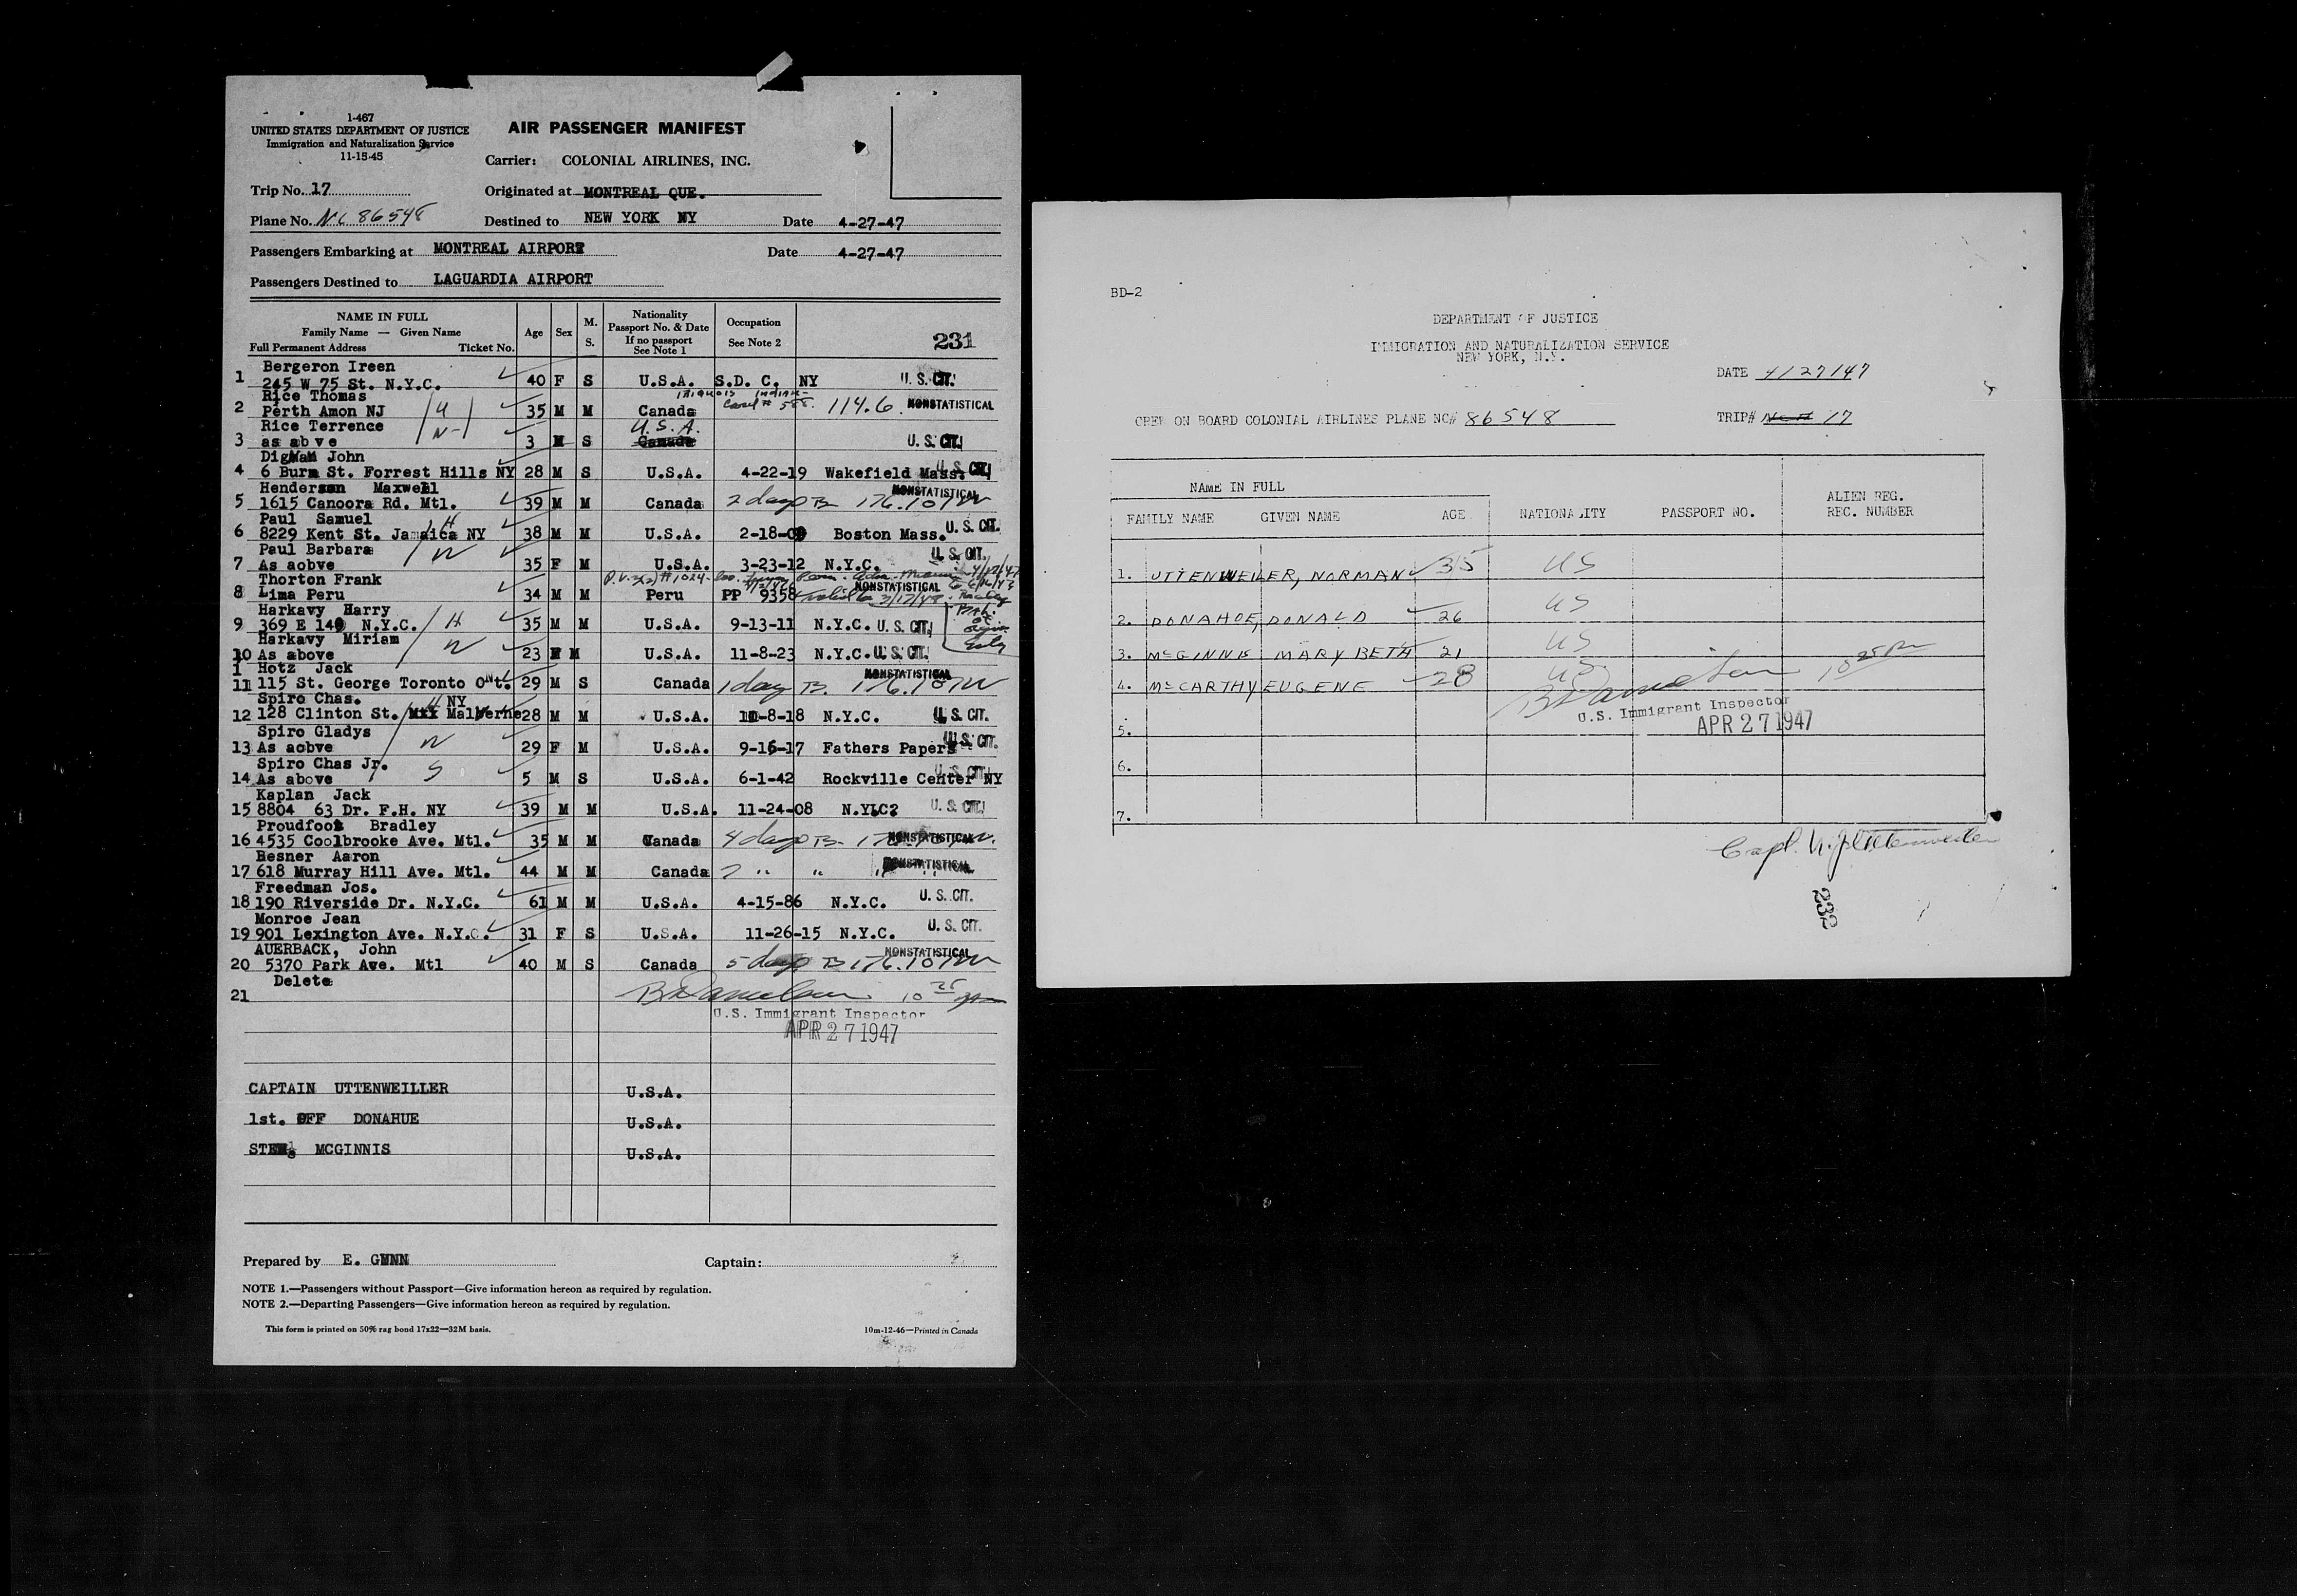 1-467
UNITED STATES DEPARTMENT OF JUSTICE
Immigration and Naturalization Service
11-15-45
AIR PASSENGER MANIFEST
Carrier: COLONIAL AIRLINES, INC.
Trip No. 17 Originated at MONTREAL QUE.
Plane No. NC 86548 Destined to NEW YORK NY Date 4-27-47
Passengers Embarking at MONTREAL AIRPORT Date 4-27-47
Passengers Destined to LAGUARDIA AIRPORT
NAME IN FULL
Family Name — Given Name
Full Permanent Address Ticket No.
Age Sex M. S.
Nationality
Passport No. & Date
If no passport
See Note 1
Occupation
See Note 2
231
Bergeron Ireen
1 245 W 75 St. N.Y.C. 40 F S U.S.A. S.D. C. NY U. S. CIT.
Rice Thomas
2 Perth Amon NJ 35 M M Canada 114.6 NONSTATISTICAL
Rice Terrence U.S.A.
3 as ab ve 3 M S Canada U. S. CIT.
Dignan John
4 6 Burm St. Forrest Hills NY 28 M S U.S.A. 4-22-19 Wakefield Mass. U. S. CIT.
Henderson Maxwell
5 1615 Canoora Rd. Mtl. 39 M M Canada 2 days B 176.101W NONSTATISTICAL
Paul Samuel
6 8229 Kent St. Jamaica NY H 38 M M U.S.A. 2-18-09 Boston Mass. U. S. CIT.
Paul Barbara
7 As aobve W 35 F M U.S.A. 3-23-12 N.Y.C. U. S. CIT.
Thorton Frank
8 Lima Peru 34 M M Peru PP 9358 NONSTATISTICAL
Harkavy Harry
9 369 E 149 N.Y.C. H 35 M M U.S.A. 9-13-11 N.Y.C. U. S. CIT.
Harkavy Miriam
10 As above W 23 F M U.S.A. 11-8-23 N.Y.C. U. S. CIT.
Hotz Jack
11 115 St. George Toronto Ont. 29 M S Canada 1 day B. 176.101W NONSTATISTICAL
Spiro Chas. NY
12 128 Clinton St. Malverne 28 M M U.S.A. 10-8-18 N.Y.C. U. S. CIT.
Spiro Gladys
13 As aobve W 29 F M U.S.A. 9-16-17 Fathers Papers U. S. CIT.
Spiro Chas Jr.
14 As above S 5 M S U.S.A. 6-1-42 Rockville Center NY U. S. CIT.
Kaplan Jack
15 8804 63 Dr. F.H. NY 39 M M U.S.A. 11-24-08 N.Y.C. U. S. CIT.
Proudfoot Bradley
16 4535 Coolbrooke Ave. Mtl. 35 M M Canada 4 days B NONSTATISTICAL
Resner Aaron
17 618 Murray Hill Ave. Mtl. 44 M M Canada 7 " " " NONSTATISTICAL
Freedman Jos.
18 190 Riverside Dr. N.Y.C. 61 M M U.S.A. 4-15-86 N.Y.C. U. S. CIT.
Monroe Jean
19 901 Lexington Ave. N.Y.C. 31 F S U.S.A. 11-26-15 N.Y.C. U. S. CIT.
AUERBACK, John
20 5370 Park Ave. Mtl 40 M S Canada 5 days B 176.101W NONSTATISTICAL
Delete
21 10 25 pm
U.S. Immigrant Inspector
APR 27 1947
CAPTAIN UTTENWEILLER U.S.A.
1st. OFF DONAHUE U.S.A.
MCGINNIS U.S.A.
Prepared by E. GUNN Captain:
NOTE 1.—Passengers without Passport—Give information hereon as required by regulation.
NOTE 2.—Departing Passengers—Give information hereon as required by regulation.
This form is printed on 50% rag bond 17x22—32M basis. 10m-12-46—Printed in Canada
BD-2
DEPARTMENT OF JUSTICE
IMMIGRATION AND NATURALIZATION SERVICE
NEW YORK, N.Y.
DATE 4/27/47
CREW ON BOARD COLONIAL AIRLINES PLANE NC# 86548 TRIP# 17
NAME IN FULL
FAMILY NAME GIVEN NAME AGE NATIONALITY PASSPORT NO. ALIEN REG. REC. NUMBER
1. UTTENWEILER, NORMAN 35 US
2. DONAHOE, DONALD 26 US
3. McGINNIS MARY BETH 21 US
4. McCARTHY EUGENE 28 US 10 25 Pm
U.S. Immigrant Inspector
APR 27 1947
5.
6.
7.
Capt. N. J. Uttenweiler
232